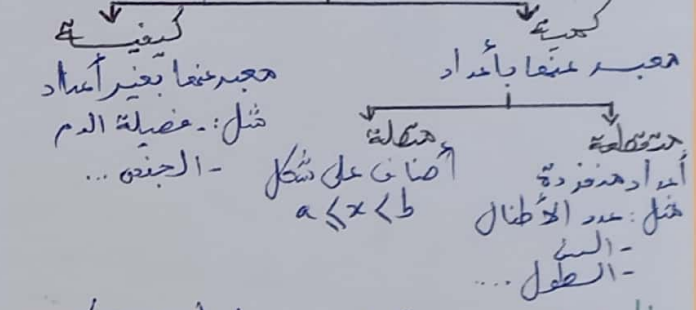 كمية
معبر عنها بأعداد
متقطعة
أعداد منفردة
مثل: عدد الأطفال
- السن
- الطول ....
متصلة
أصناف على شكل
a ⩽ x < b
كيفية
معبر عنها بغير أعداد
مثل: - فصيلة الدم
- الجنس ...